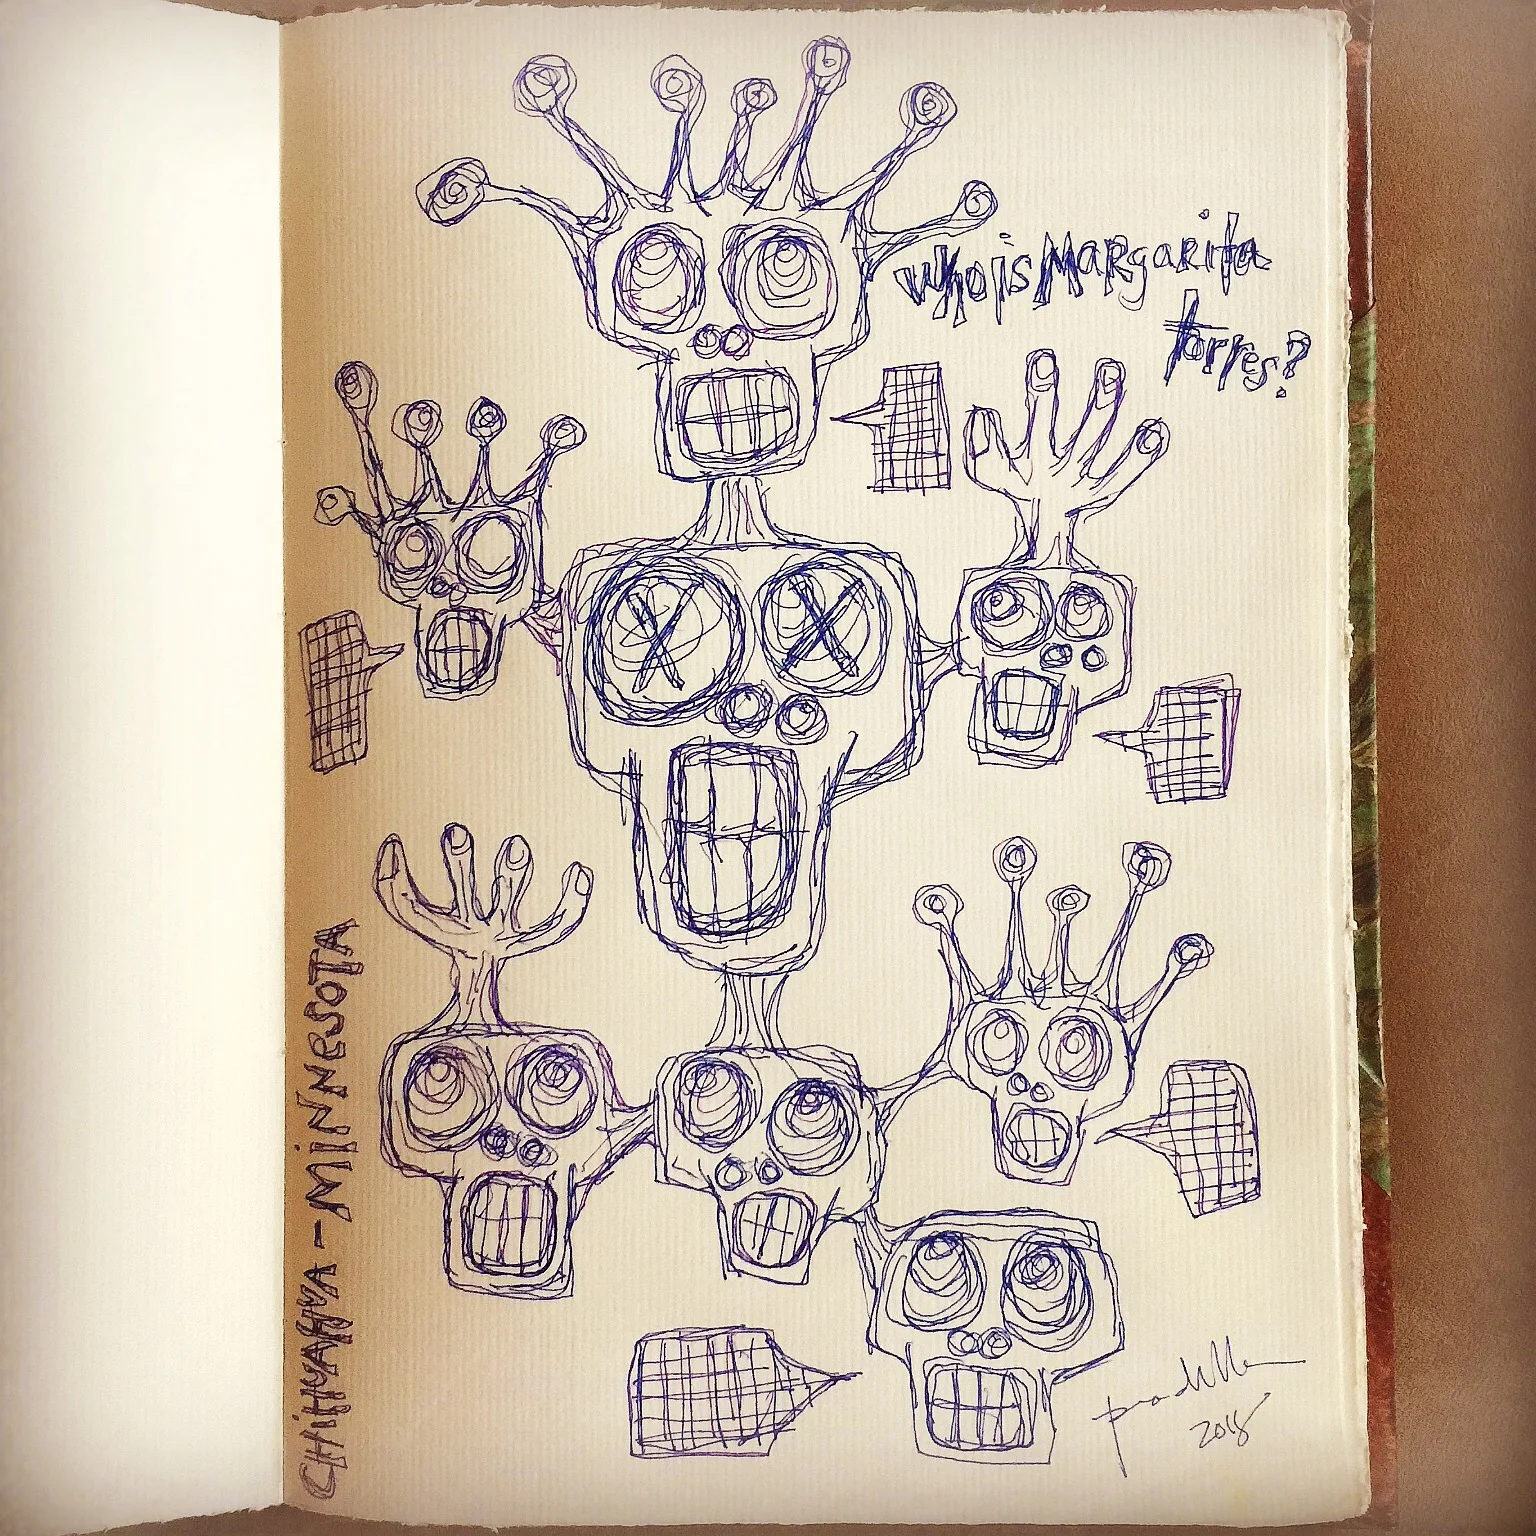 Who is Margarita
Torres?
CHiHUAHUA - MiNNeSOTA
padilla
2018